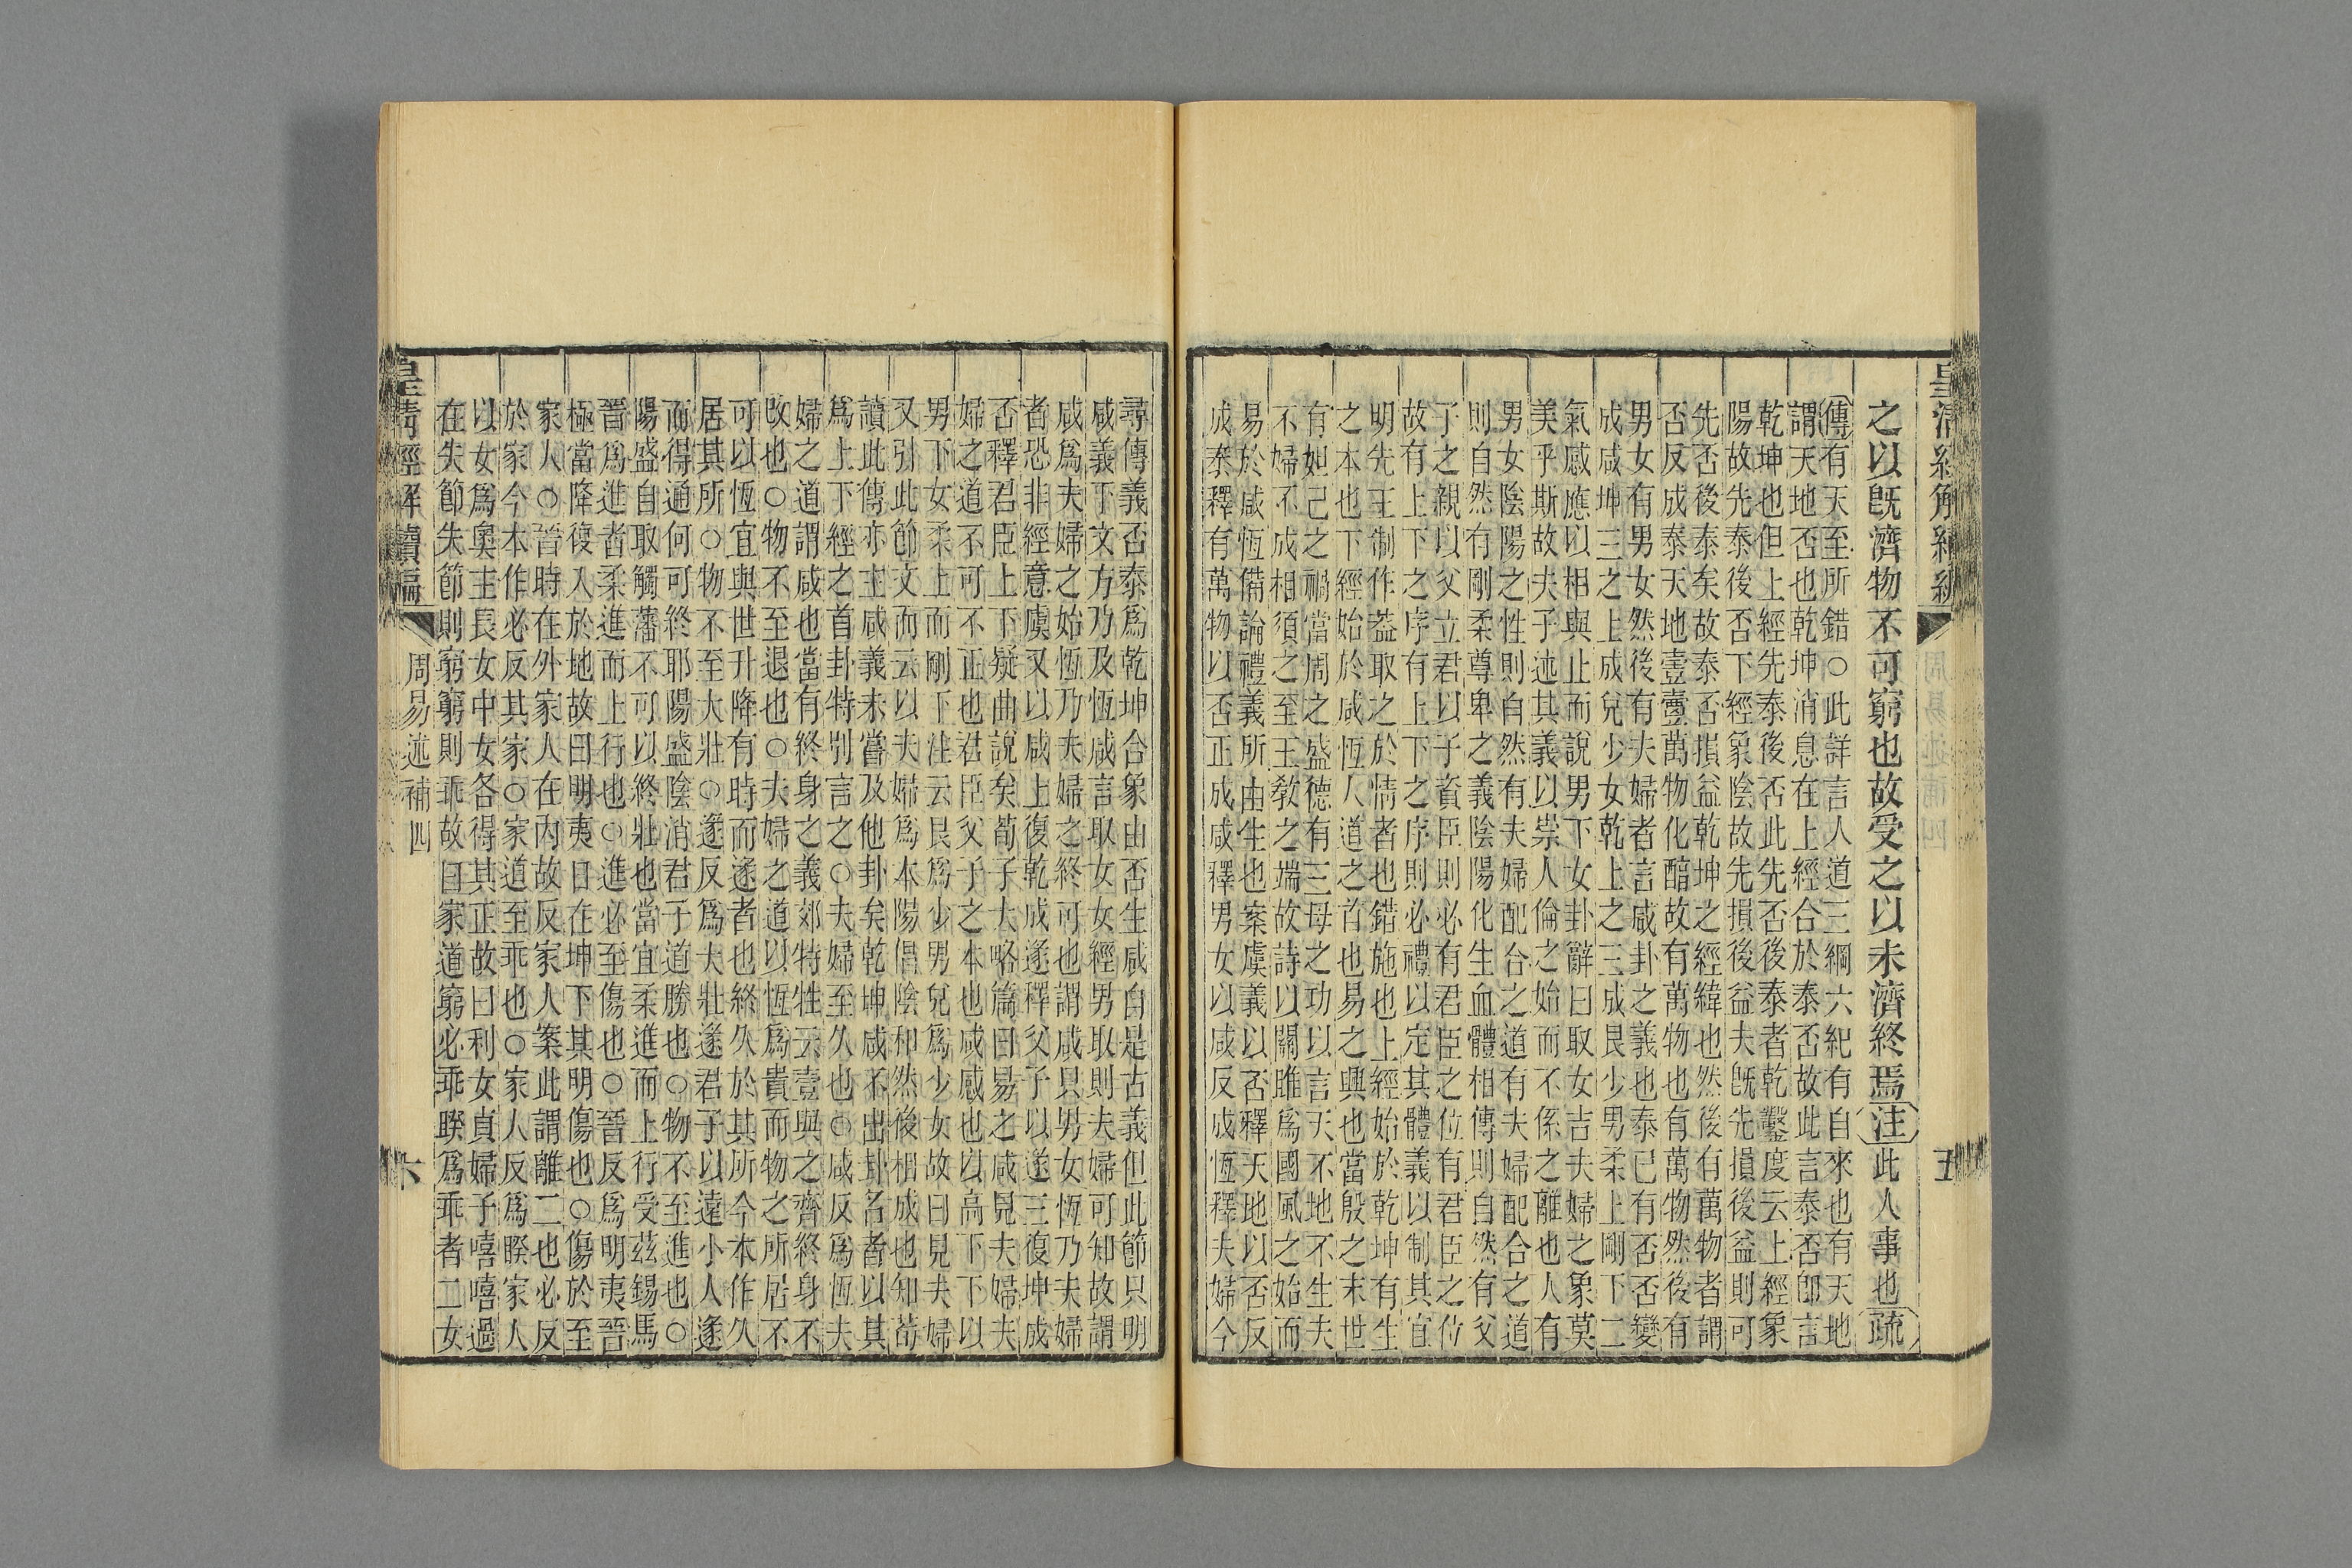 皇清經解續編
五
之以旣濟物不可窮也故受之以未濟終焉注此人事也疏
傳有天至所錯○此詳言人道三綱六紀有自來也有天地
謂天地否也乾坤消息在上經合於泰否故此言泰否卽言
乾坤也但上經先泰後否此先否後泰者乾鑿度云上經象
陽故先泰後否下經象陰故先損後益夫旣先損後益則可
先否後泰矣故泰否損益乾坤之經緯也然後有萬物者謂
否反成泰天地壹壹萬物化醕故有萬物也有萬物然後有
男女有男女然後有夫婦者言咸卦之義也泰已有否否變
成咸坤三之上成兌少女乾上之三成艮少男柔上剛下二
氣感應以相與止而說男下女卦辭曰取女吉夫婦之象莫
美乎斯故夫子述其義以崇人倫之始而不係之離也人有
男女陰陽之性則自然有夫婦配合之道有夫婦配合之道
則自然有剛柔尊卑之義陰陽化生血體相傳則自然有父
子之親以父立君以子資臣則必有君臣之位有君臣之位
故有上下之序有上下之序則必禮以定其體義以制其宜
明先王制作葢取之於情者也錯施也上經始於乾坤有生
之本也下經始於咸恆人道之首也易之興也當殷之末世
有妲己之禍當周之盛德有三母之功以言天不地不生夫
不婦不成相須之至王敎之端故詩以關雎爲國風之始而
易於咸恆備論禮義所由生也案虞義以否釋天地以否反
成泰釋有萬物以否正成咸釋男女以咸反成恆釋夫婦今
尋傳義否泰爲乾坤合象由否生咸自是古義但此節只明
咸義下文方乃及恆咸言取女女經男取則夫婦可知故謂
咸爲夫婦之始恆乃夫婦之終可也謂咸只男女恆乃夫婦
者恐非經意虞又以咸上復乾成遂釋父子以遂三復坤成
否釋君臣上下疑曲說矣荀子大略篇曰易之咸見夫婦夫
婦之道不可不正也君臣父子之本也咸感也以高下下以
男下女柔上而剛下注云艮爲少男兌爲少女故曰見夫婦
又引此節文而云以夫婦爲本陽倡陰和然後相成也知荀
讀此傳亦主咸義未嘗及他卦矣乾坤咸不出卦名者以其
爲上下經之首卦特別言之○夫婦至久也○咸反爲恆夫
婦之道謂咸也當有終身之義郊特牲云壹與之齊終身不
改也○物不至退也○夫婦之道以恆爲貴而物之所居不
可以恆宜與世升降有時而遂者也終久於其所今本作久
居其所○物不至大壯○遂反爲大壯遂君子以遠小人遂
而得通何可終耶陽盛陰消君子道勝也○物不至進也○
陽盛自取觸藩不可以終壯也當宜柔進而上行受茲錫馬
晉爲進者柔進而上行也○進必至傷也○晉反爲明夷晉
極當降復入於地故曰明夷日在坤下其明傷也○傷於至
家人○晉時在外家人在內故反家人案此謂離二也必反
於家今本作必反其家○家道至乖也○家人反爲睽家人
以女爲奧主長女中女各得其正故曰利女貞婦子嘻嘻過
在失節失節則窮窮則乖故曰家道窮必乖睽爲乖者二女
皇清經解續編
周易述補四
六